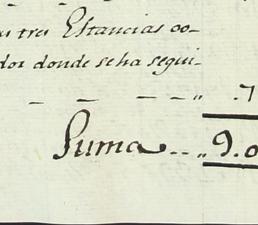 tres Estancias co-
dor donde seha segui-
Suma 9.0